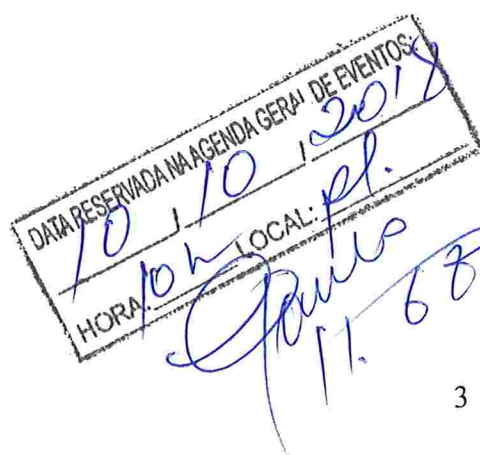 DATA RESERVADA NA AGENDA GERAL DE EVENTOS:
10 / 10 / 2018
HORA: 10 h LOCAL: pl.
11. 68
3